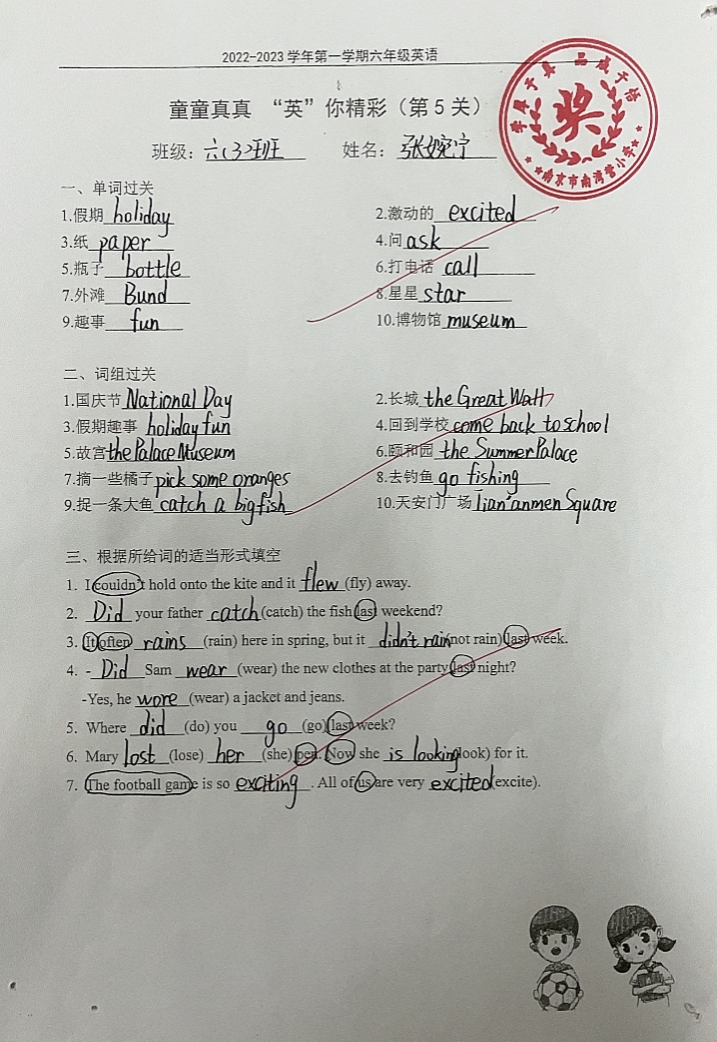 2022-2023 学年第一学期六年级英语
童童真真 “英”你精彩（第 5 关）
班级：六(3)班 姓名：张婉宁
学真于真 品成于悟
奖
南京市南湾营小学
一、单词过关
1.假期 holiday 2.激动的 excited
3.纸 paper 4.问 ask
5.瓶子 bottle 6.打电话 call
7.外滩 Bund 8.星星 star
9.趣事 fun 10.博物馆 museum
二、词组过关
1.国庆节 National Day 2.长城 the Great Wall
3.假期趣事 holiday fun 4.回到学校 come back to school
5.故宫 the Palace Museum 6.颐和园 the Summer Palace
7.摘一些橘子 pick some oranges 8.去钓鱼 go fishing
9.捉一条大鱼 catch a big fish 10.天安门广场 Tian'anmen Square
三、根据所给词的适当形式填空
1. I couldn't hold onto the kite and it flew (fly) away.
2. Did your father catch (catch) the fish last weekend?
3. It often rains (rain) here in spring, but it didn't rain (not rain) last week.
4. - Did Sam wear (wear) the new clothes at the party last night?
-Yes, he wore (wear) a jacket and jeans.
5. Where did (do) you go (go) last week?
6. Mary lost (lose) her (she) pen. Now she is looking (look) for it.
7. The football game is so exciting . All of us are very excited (excite).